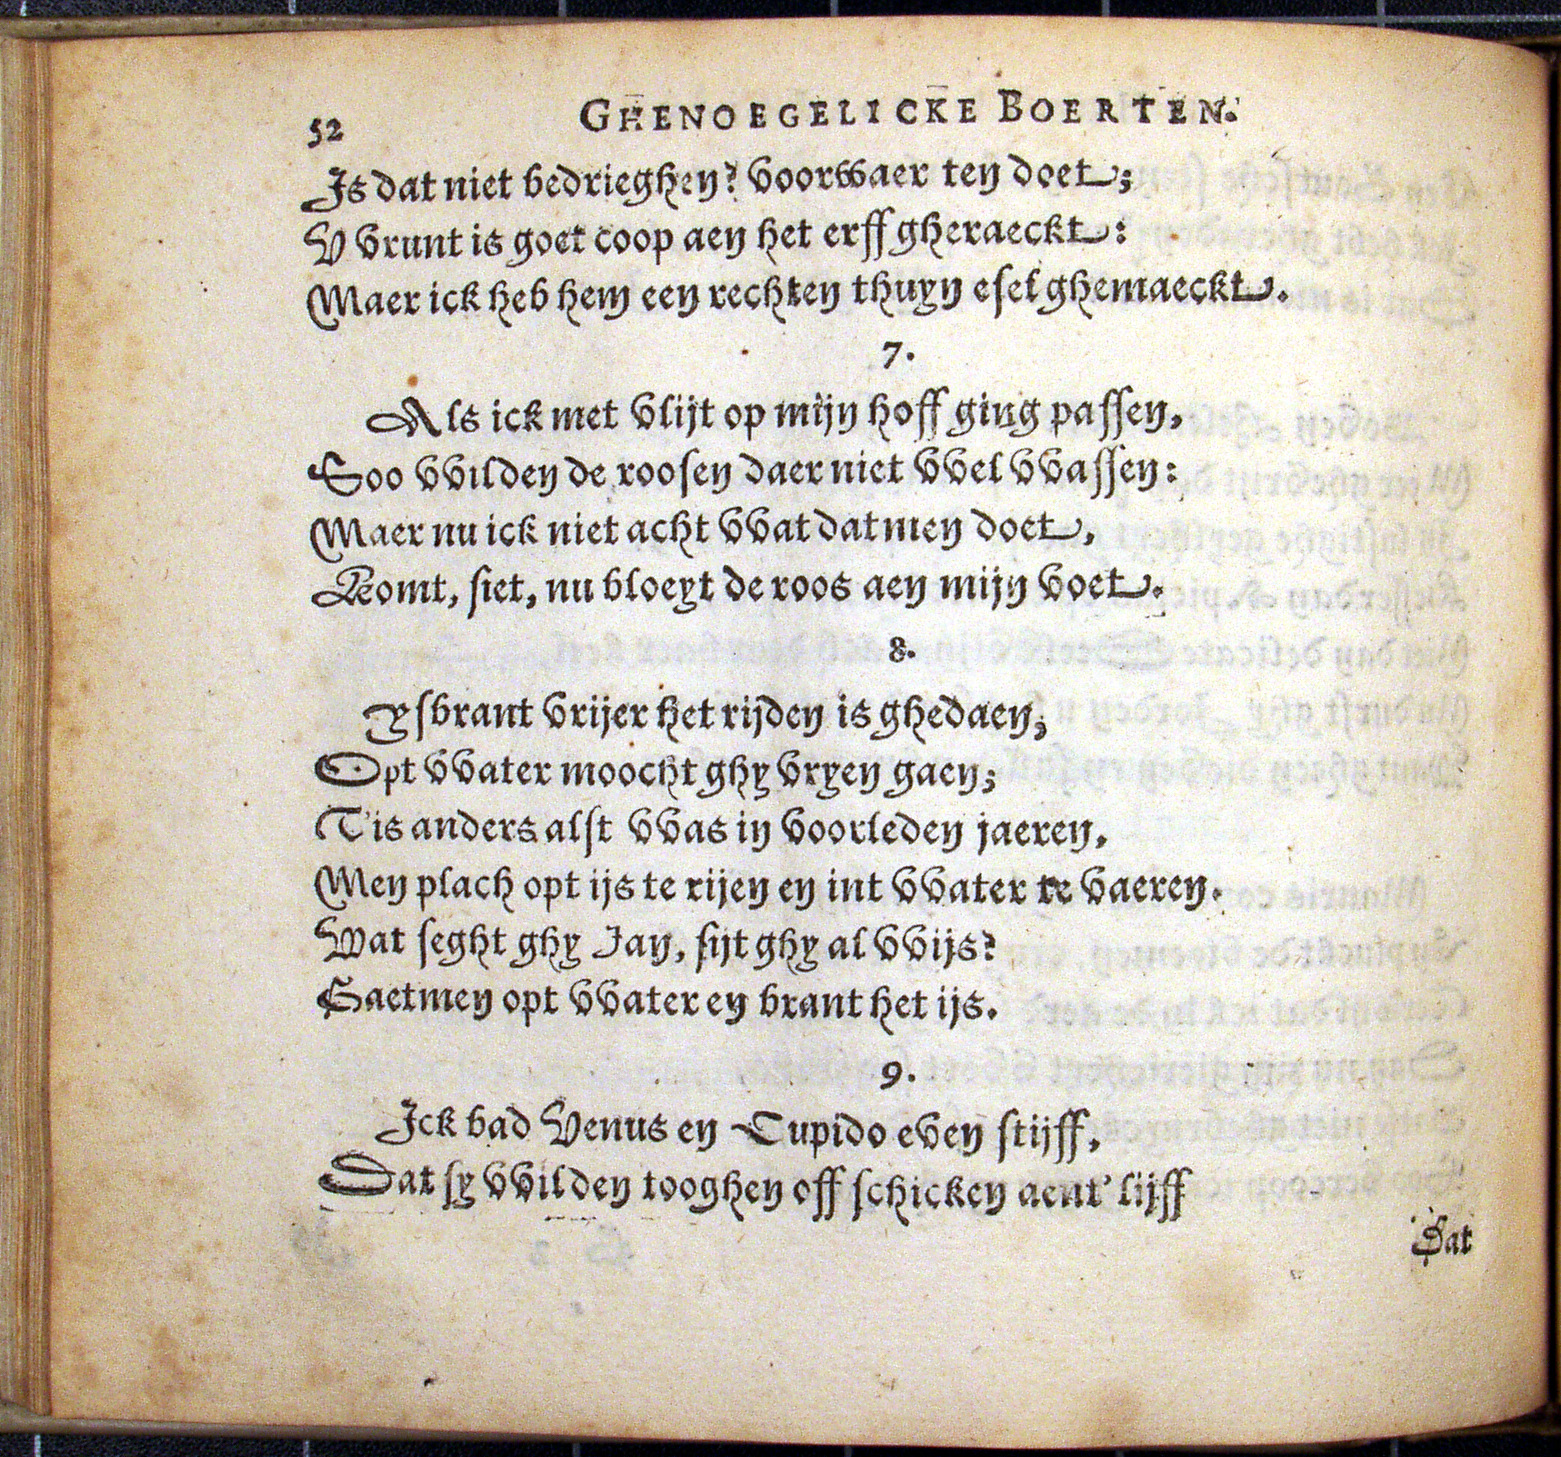 52 GHENOEGELICKE BOERTEN.
Is dat niet bedrieghen? voorwaer ten doet;
V vrunt is goet coop aen het erff gheraeckt:
Maer ick heb hem een rechten thuyn esel ghemaeckt.
7.
Als ick met vlijt op mijn hoff ging passen,
Soo vvilden de roosen daer niet vvel vvassen:
Maer nu ick niet acht vvat datmen doet,
Komt, siet, nu bloeyt de roos aen mijn voet.
8.
Ysbrant vrijer het rijden is ghedaen;
Opt vvater moocht ghy vryen gaen;
T'is anders alst vvas in voorleden jaeren,
Men plach opt ijs te rijen en int vvater te vaeren.
Wat seght ghy Jan, sijt ghy al vvijs?
Gaetmen opt vvater en brant het ijs.
9.
Ick bad Venus en Cupido even stijff,
Dat sy vvilden tooghen off schicken aent' lijff
Dat